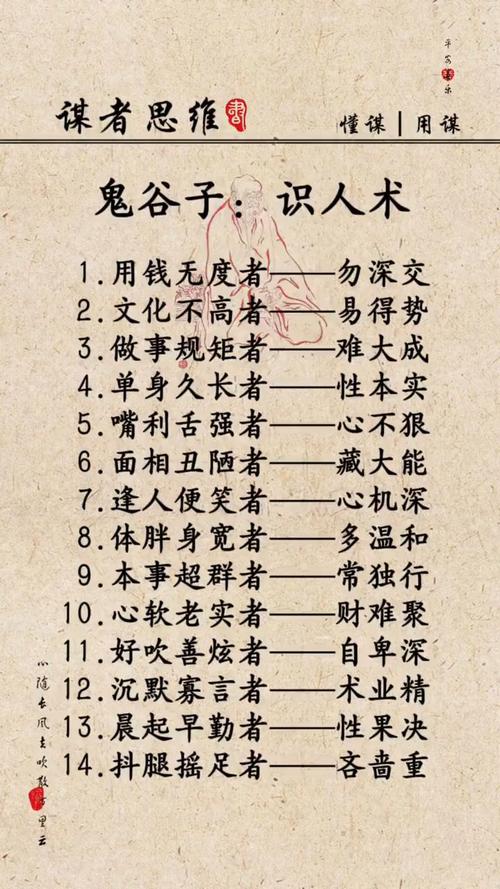 平安喜乐
谋者思维 书
懂谋|用谋
鬼谷子：识人术
1.用钱无度者——勿深交
2.文化不高者——易得势
3.做事规矩者——难大成
4.单身久长者——性本实
5.嘴利舌强者——心不狠
6.面相丑陋者——藏大能
7.逢人便笑者——心机深
8.体胖身宽者——多温和
9.本事超群者——常独行
10.心软老实者——财难聚
11.好吹善炫者——自卑深
12.沉默寡言者——术业精
13.晨起早勤者——性果决
14.抖腿摇足者——吝啬重
心随长风去吹散万里云